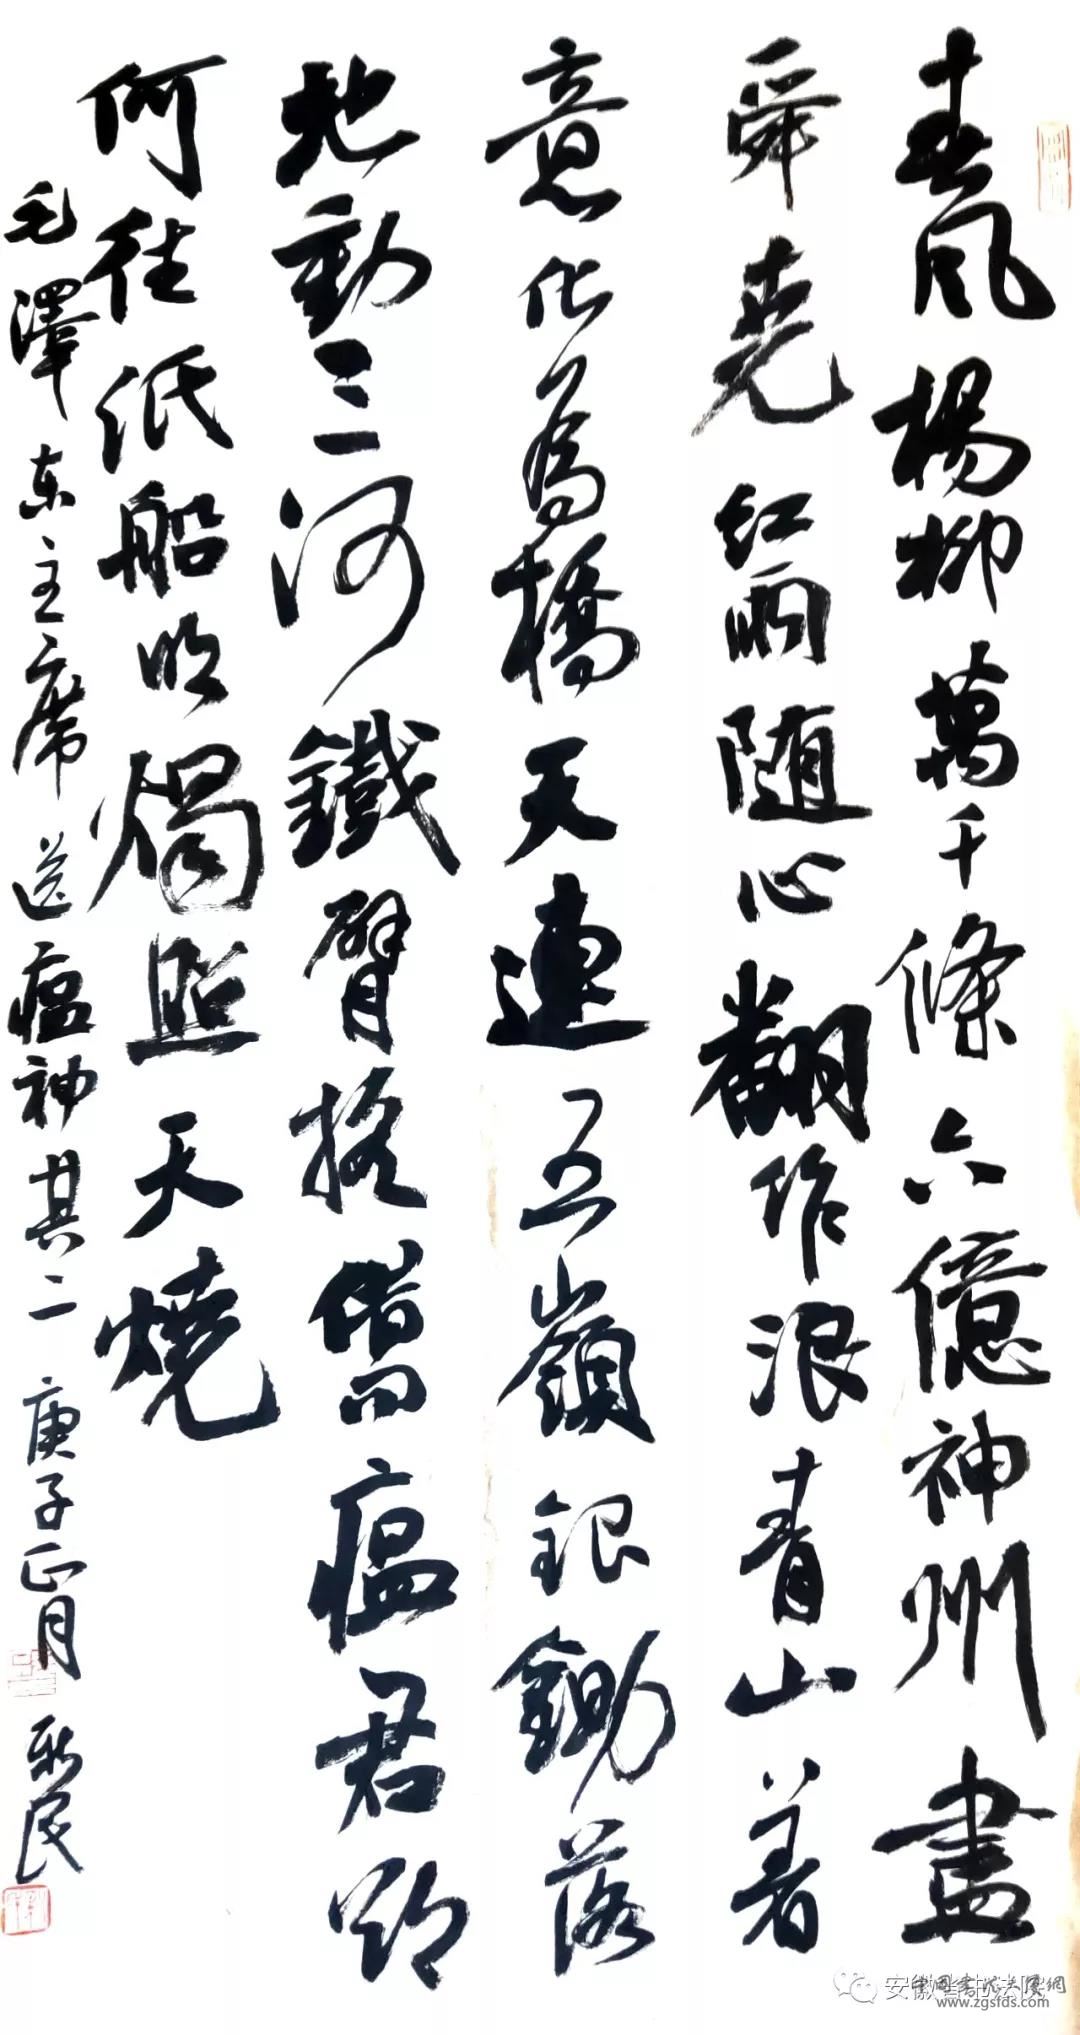 春風楊柳萬千條六億神州盡
舜堯紅雨随心翻作浪青山着
意化為橋天連五嶺銀鋤落
地動三河鐵臂搖借問瘟君欲
何往紙船明燭照天燒
毛澤东主席送瘟神其二 庚子正月 新民
安徽省书法院
www.zgsfds.com